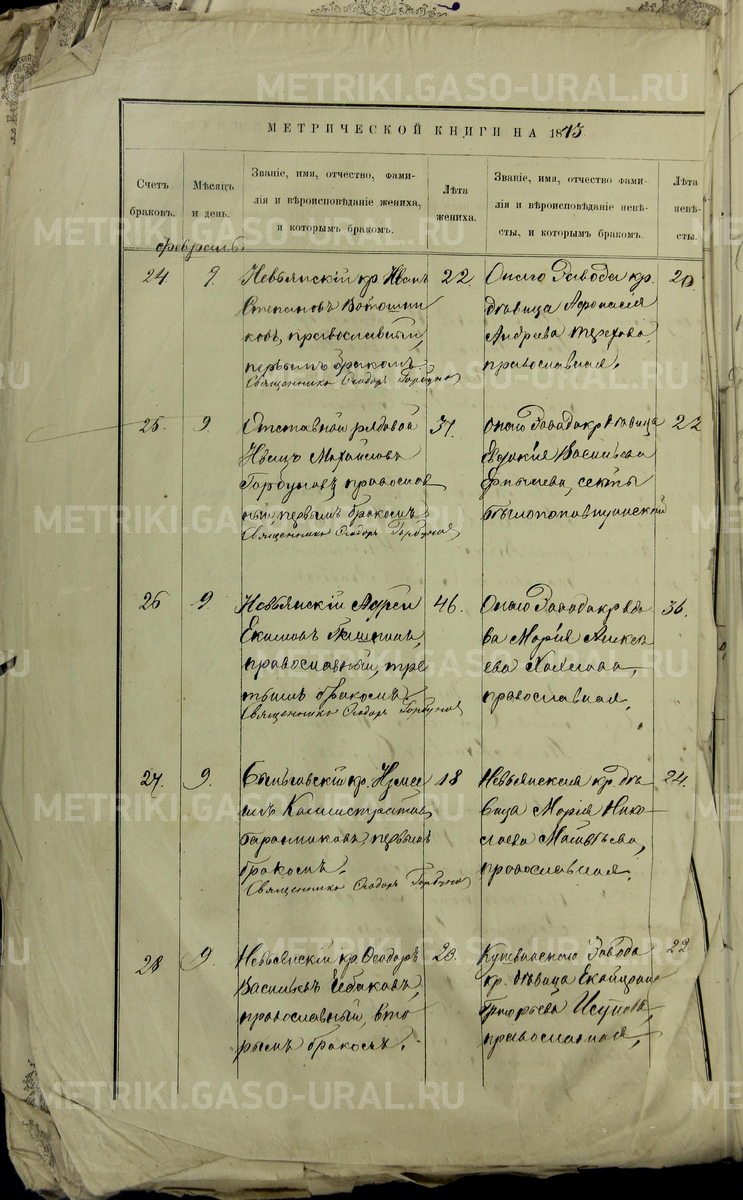 METRIKI.GASO-URAL.RU
МЕТРИЧЕСКОЙ КНИГИ НА 1873
Счетъ браковъ.
Мѣсяцъ и день.
Званіе, имя, отчество, фами-
лія и вѣроисповѣданіе жениха,
и которымъ бракомъ.
Лѣта жениха.
Званіе, имя, отчество фами-
лія и вѣроисповѣданіе невѣ-
сты, и которымъ бракомъ.
Лѣта невѣ-
сты.
Февраль
24
9.
Невьянскій кр. Иванъ
Степановъ
ковъ, православный,
первымъ бракомъ.
Священникъ Ѳеодоръ Горбунов
22.
Онаго Завода кр.
дѣвица Афонасія
Андреева
православная.
20
25.
9.
Отставной рядовой
Иванъ Михайловъ
Горбуновъ православ
ный, первымъ бракомъ
Священникъ Ѳеодоръ Горбунов
37.
Онаго Завода кр дѣвица
Евдокія Васильева
секты
22
26
9.
Невьянскій
Екимовъ
православный, тре
тьимъ бракомъ
Священникъ Ѳеодоръ Горбунов
46.
Онаго Завода кр вдо
ва Марія Алексѣ
ева
православная,
36.
27.
9.
кр. Измаи
илъ Каллистратов
первымъ
бракомъ.
Священникъ Ѳеодоръ Горбунов
18
Невьянская кр. дѣ
вица Марія Нико
лаева Матвѣева,
православная.
24.
28
9.
Невьянскій кр. Ѳеодоръ
Васильевъ
православный, вто
рымъ бракомъ.
20.
Кушвинскаго Завода
кр. дѣвица Екатерина
Григорьева
православная,
22